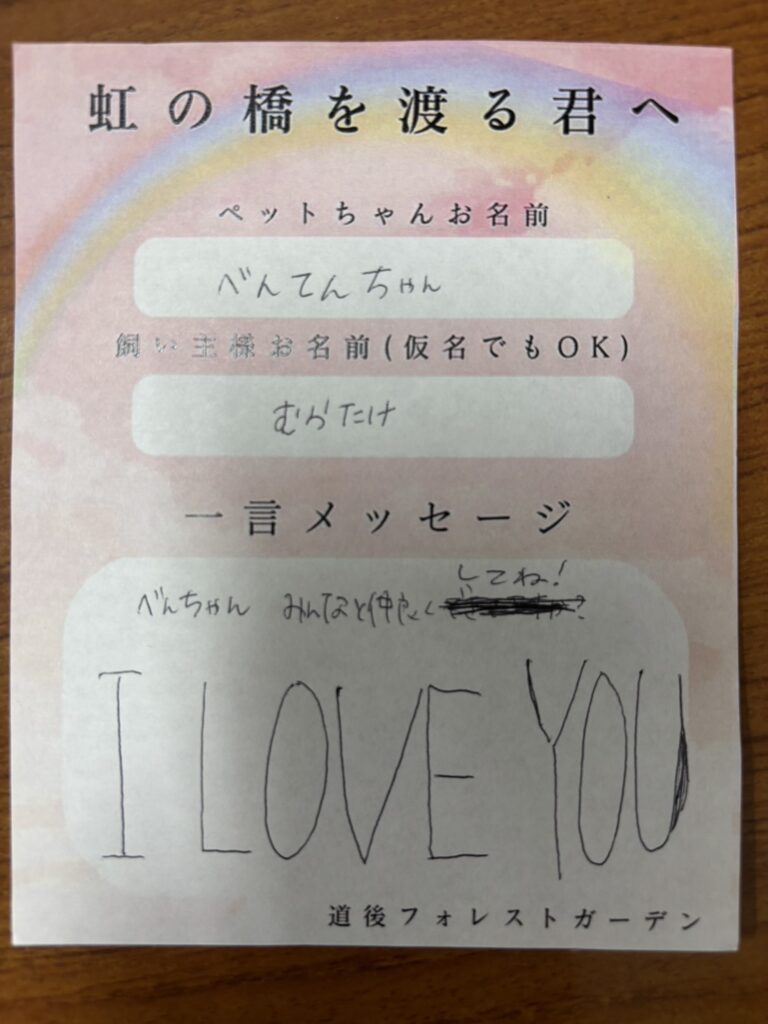 虹の橋を渡る君へ
ペットちゃんお名前
べんてんちゃん
飼い主様お名前(仮名でもOK)
むらたけ
一言メッセージ
してね!
べんちゃん みんなと仲良く
I LOVE YOU
道後フォレストガーデン